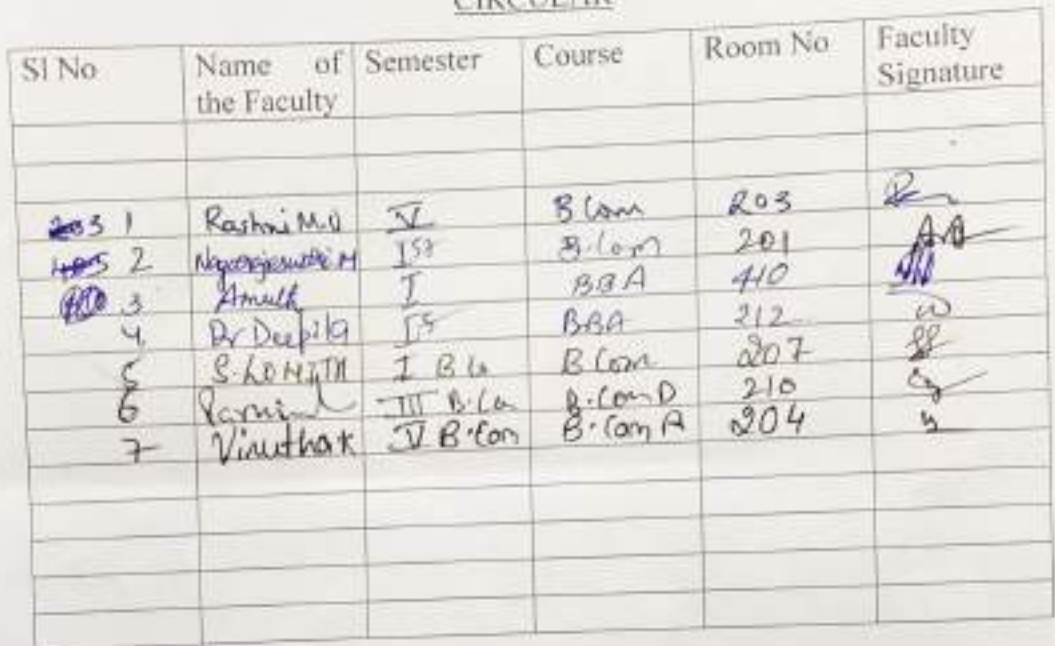 CIRCULAR
Sl No Name of the Faculty Semester Course Room No Faculty Signature
1 Rashmi M.U V B Com 203
2 M Ist B.Com 201
3 I BBA 410
4 Dr Ist BBA 212
5 S. LOHITH I B Co B Com 207
6 III B.Co B.Com D 210
7 Vinutha K V B.Com B.Com A 204